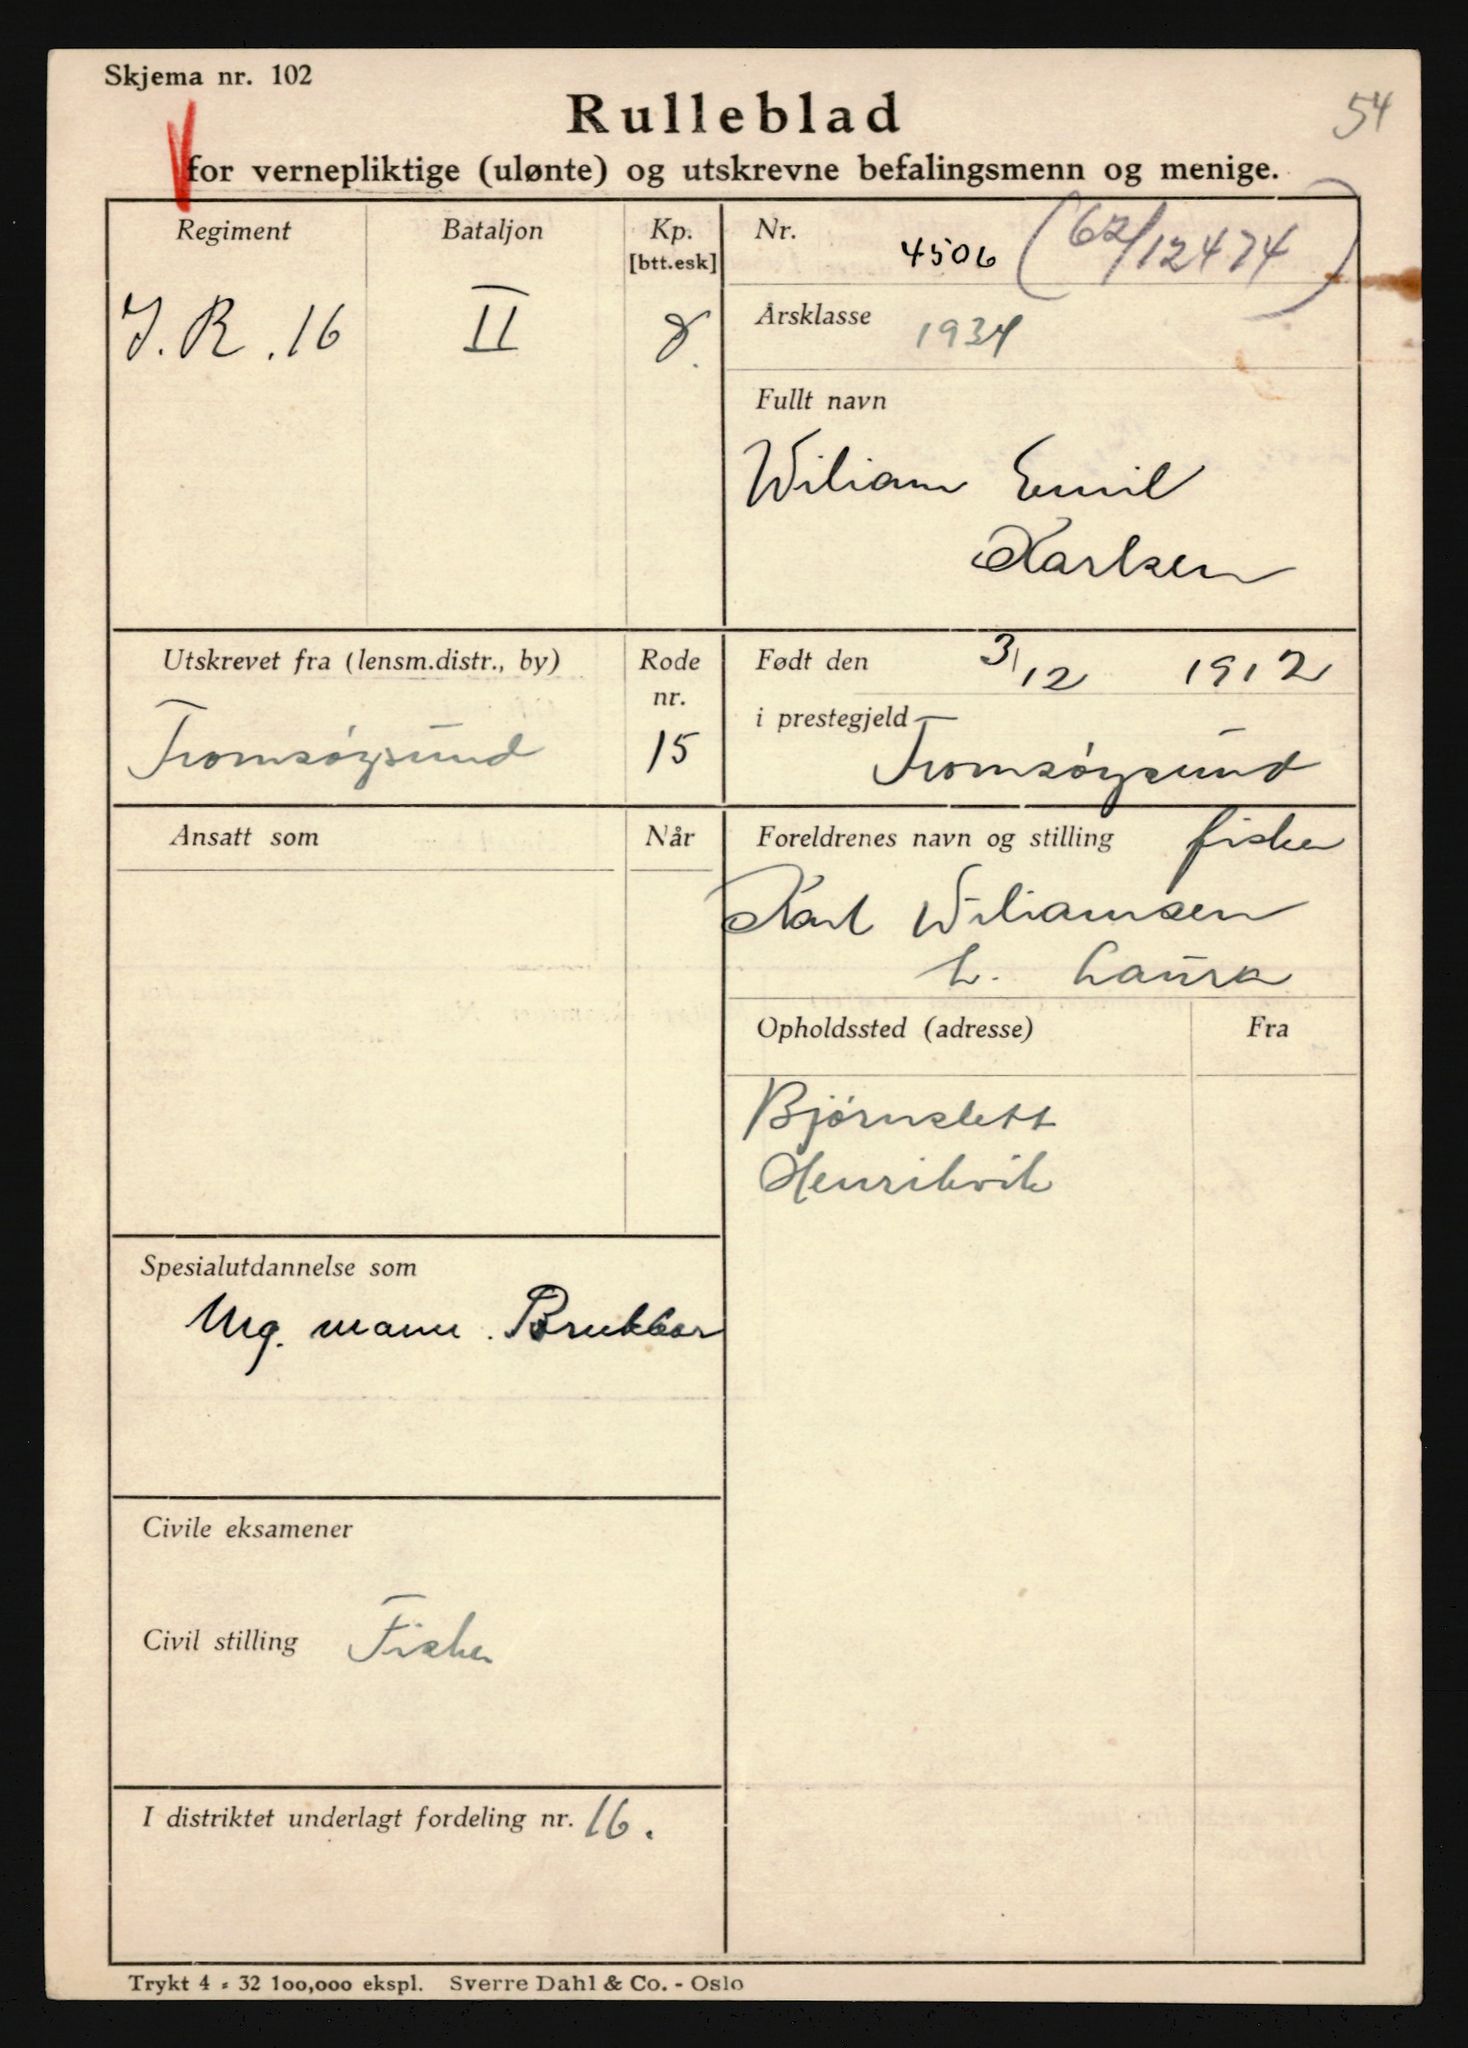 Skjema nr. 102
54
Rulleblad
for vernepliktige (ulønte) og utskrevne befalingsmenn og menige.
Regiment
I.R.16
Bataljon
II
Kp.
[btt.esk]
8.
Nr. 4506 (62/12474)
Årsklasse 1934
Fullt navn
Wiliam Emil
Karlsen
Utskrevet fra (lensm.distr., by)
Tromsøysund
Rode
nr.
15
Født den 3/12 1912
i prestegjeld
Tromsøysund
Ansatt som
Når
Foreldrenes navn og stilling fisker
Karl Wiliamsen
h. Laura
Opholdssted (adresse)
Fra
Bjørnslett
Henrikvik
Spesialutdannelse som
Mg. mann.
Civile eksamener
Civil stilling Fisker
I distriktet underlagt fordeling nr. 16.
Trykt 4 - 32 100,000 ekspl. Sverre Dahl & Co. - Oslo